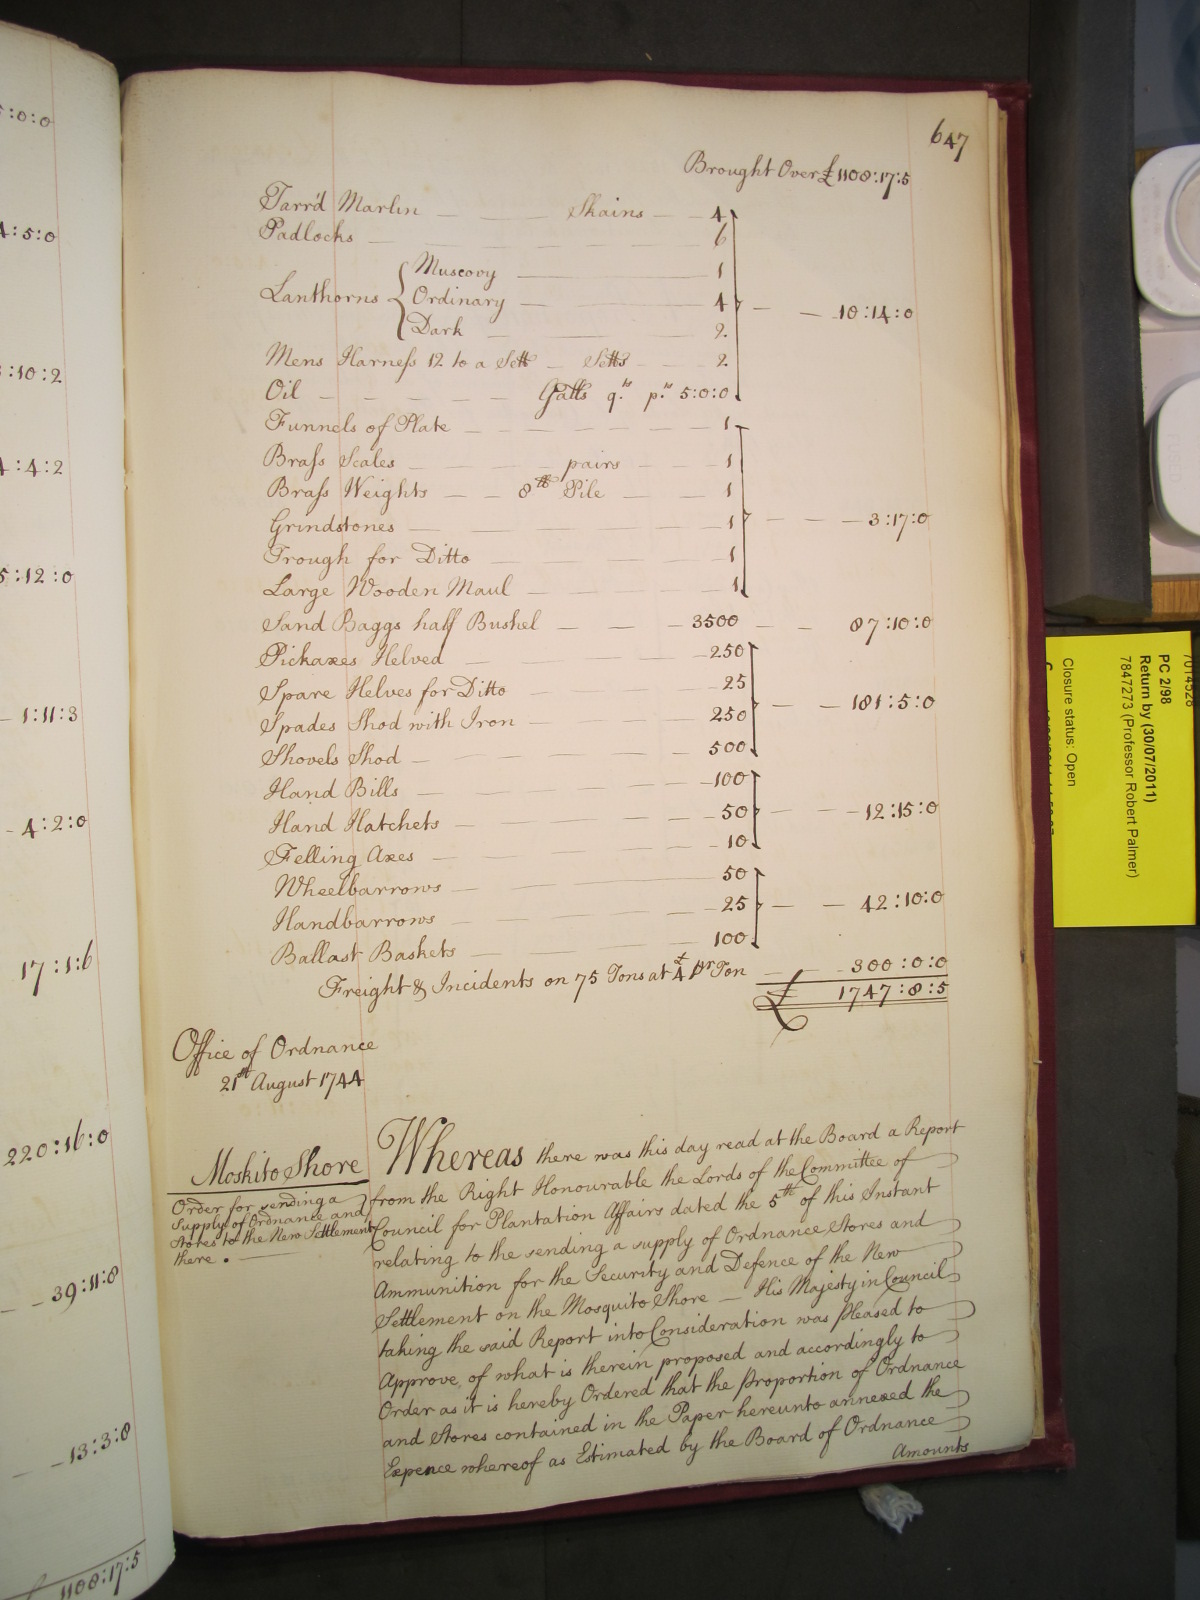 5:0:0
4:5:0
:10:2
4:4:2
5:12:0
1:11:3
4:2:0
17:1:6
220:16:0
39:11:8
13:3:8
1108:17:5
647
Brought Over £1108:17:5
Tarr'd Marlin Skains 4
Padlocks 6
Lanthorns { Muscovy 1
Ordinary 4 10:14:0
Dark 2
Mens Harness 12 to a Sett Setts 2
Oil Galls q.ts p.ts 5:0:0
Funnels of Plate 1
Brass Scales pairs 1
Brass Weights 8 lb Pile 1
Grindstones 1 3:17:0
Trough for Ditto 1
Large Wooden Maul 1
Sand Baggs half Bushel 3500 87:10:0
Pickaxes Helved 250
Spare Helves for Ditto 25
Spades Shod with Iron 250 181:5:0
Shovels Shod 500
Hand Bills 100
Hand Hatchets 50 12:15:0
Felling Axes 10
Wheelbarrows 50
Handbarrows 25 42:10:0
Ballast Baskets 100
Freight & Incidents on 75 Tons at £4 pr Ton 300:0:0
£ 1747:8:5
Office of Ordnance
21st August 1744
Moskito Shore
Order for sending a
Supply of Ordnance and
Stores to the New Settlement
there.
Whereas there was this day read at the Board a Report
from the Right Honourable the Lords of the Committee of
Council for Plantation Affairs dated the 5th of this Instant
relating to the sending a supply of Ordnance Stores and
Ammunition for the Security and Defence of the New
Settlement on the Mosquito Shore — His Majesty in Council
taking the said Report into Consideration was pleased to
Approve of what is therein proposed and accordingly to
Order as it is hereby Ordered that the Proportion of Ordnance
and Stores contained in the Paper hereunto annexed the
Expence whereof as Estimated by the Board of Ordnance
Amounts
7014528
PC 2/98
Return by (30/07/2011)
7847273 (Professor Robert Palmer)
Closure status: Open